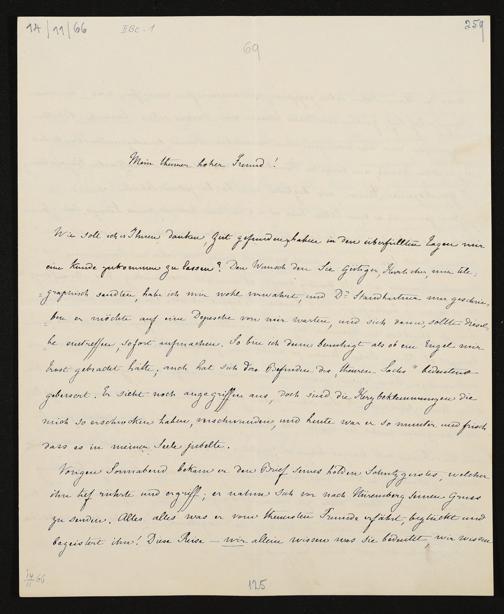 14/11/66 II Bc-1 259
69
Mein theurer hoher Freund!
Wie soll ich es Ihnen danken, Zeit gefunden zu haben in den überfüllten Tagen mir
eine Kunde zukommen zu lassen? Den Wunsch den Sie Gütiger, Herrlicher, mir tele-
=graphisch sandten, habe ich mir wohl verwahrt, und Dr Standhartner nur geschrie-
ben er möchte auf eine Depesche von mir warten, und sich dann, sollte diesel-
be eintreffen, sofort aufmachen. So bin ich denn beruhigt als ob ein Engel mir
Trost gebracht hätte; auch hat sich das Befinden des theuren „Sachs" bedeutend
gebessert. Er sieht noch angegriffen aus, doch sind die Herzbeklemmungen die
mich so erschrocken haben, verschwunden, und heute war er so munter und frisch
dass es in meiner Seele jubelte.
Vorigen Sonnabend bekam er den Brief seines holden Schutzgeistes, welcher
ihn tief rührte und ergriff; er nahm sich vor nach Nüremberg seinen Gruss
zu senden. Alles alles was er vom theuersten Freunde erfährt, beglückt und
begeistert ihn! Diese Reise – wir allein wissen was sie bedeutet, wir wissen
14/11 66
125